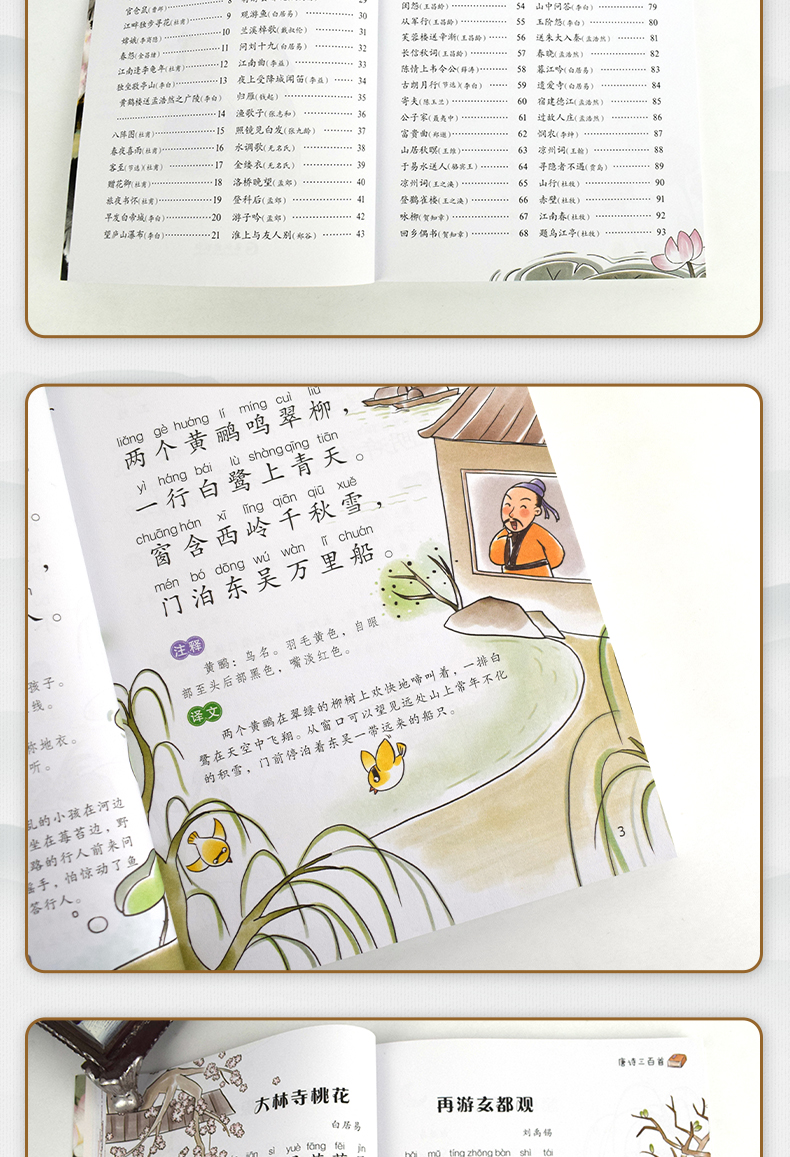 宫仓鼠(曹邺) 8
江畔独步寻花(杜甫) 9
嫦娥(李商隐) 10
春怨(金昌绪) 11
江南逢李龟年(杜甫) 12
独坐敬亭山(李白) 13
黄鹤楼送孟浩然之广陵(李白)
14
八阵图(杜甫) 15
春夜喜雨(杜甫) 16
客至(节选)(杜甫) 17
赠花卿(杜甫) 18
旅夜书怀(杜甫) 19
早发白帝城(李白) 20
望庐山瀑布(李白) 21
29
观游鱼(白居易) 30
兰溪棹歌(戴叔伦) 31
问刘十九(白居易) 32
江南曲(李益) 33
夜上受降城闻笛(李益) 34
归雁(钱起) 35
渔歌子(张志和) 36
照镜见白发(张九龄) 37
水调歌(无名氏) 38
金缕衣(无名氏) 39
洛桥晚望(孟郊) 40
登科后(孟郊) 41
游子吟(孟郊) 42
淮上与友人别(郑谷) 43
闺怨(王昌龄) 54
从军行(王昌龄) 55
芙蓉楼送辛渐(王昌龄) 56
长信秋词(王昌龄) 57
陈情上韦令公(薛涛) 58
古朗月行(节选)(李白) 59
寄夫(陈玉兰) 60
公子家(聂夷中) 61
富贵曲(郑遨) 62
山居秋暝(王维) 63
于易水送人(骆宾王) 64
凉州词(王之涣) 65
登鹳雀楼(王之涣) 66
咏柳(贺知章) 67
回乡偶书(贺知章) 68
山中问答(李白) 79
玉阶怨(李白) 80
送朱大入秦(孟浩然) 81
春晓(孟浩然) 82
暮江吟(白居易) 83
遗爱寺(白居易) 84
宿建德江(孟浩然) 85
过故人庄(孟浩然) 86
悯农(李绅) 87
凉州词(王翰) 88
寻隐者不遇(贾岛) 89
山行(杜牧) 90
赤壁(杜牧) 91
江南春(杜牧) 92
题乌江亭(杜牧) 93
liǎng gè huáng lí míng cuì liǔ
两个黄鹂鸣翠柳，
yì háng bái lù shàng qīng tiān
一行白鹭上青天。
chuāng hán xī lǐng qiān qiū xuě
窗含西岭千秋雪，
mén bó dōng wú wàn lǐ chuán
门泊东吴万里船。
注释
黄鹂：鸟名。羽毛黄色，自眼
部至头后部黑色，嘴淡红色。
译文
两个黄鹂在翠绿的柳树上欢快地啼叫着，一排白
鹭在天空中飞翔。从窗口可以望见远处山上常年不化
的积雪，门前停泊着东吴一带远来的船只。
3
孩子。
线。
地衣。
听。
乱的小孩在河边
坐在莓苔边，野
路的行人前来问
手，怕惊动了鱼
答行人。
大林寺桃花
白居易
sì yuè fāng fēi jìn
唐诗三百首
再游玄都观
刘禹锡
mǔ tíng zhōng bàn shì tái